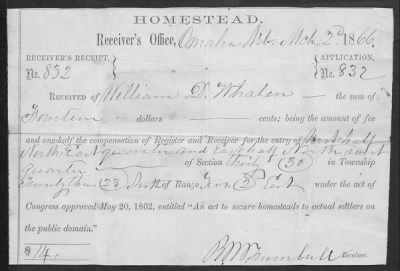 HOMESTEAD.
Receiver's Office, Omaha Neb. Mch. 2d 1866.
RECEIVER'S RECEIPT, APPLICATION,
No. 832 No. 832
RECEIVED OF William D. Whalen — the sum of
Fourteen — dollars — cents; being the amount of fee
and one-half the compensation of Register and Receiver for the entry of North half
North East quarter and East half North West
quarter of Section thirty (30) in Township
Twenty three (23) North of Range (8) East under the act of
Congress approved May 20, 1862, entitled "An act to secure homesteads to actual settlers on
the public domain."
$14.
Trumbull Receiver.